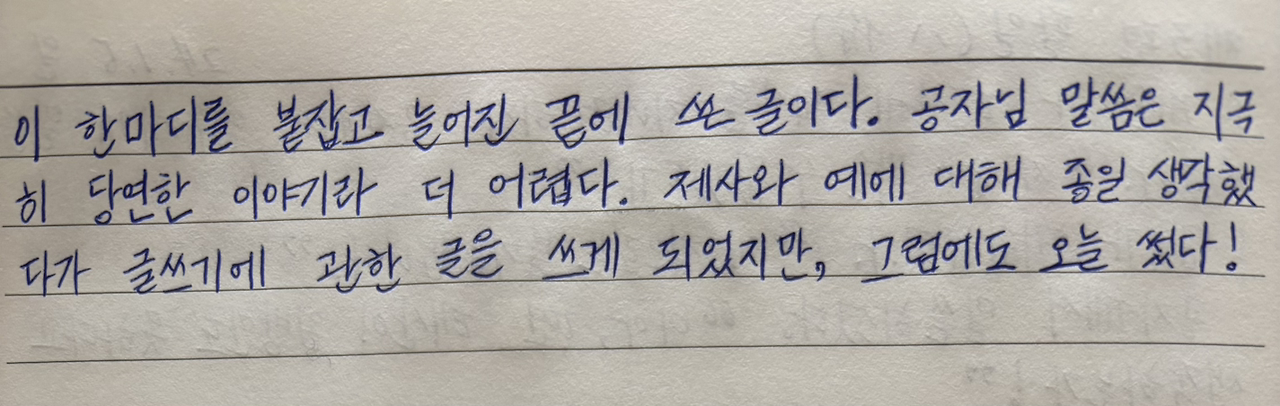 이 한마디를 붙잡고 늘어진 끝에 쓴 글이다. 공자님 말씀은 지극
히 당연한 이야기라 더 어렵다. 제사와 예에 대해 종일 생각했
다가 글쓰기에 관한 글을 쓰게 되었지만, 그럼에도 오늘 썼다!